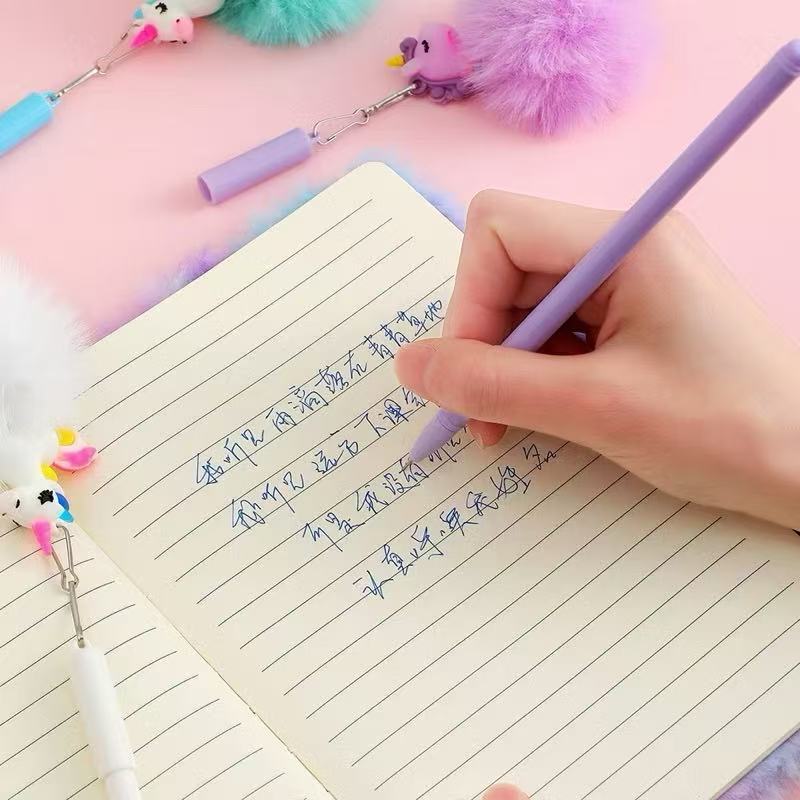 我听见雨滴落在青青草地
我听见远方下课
可是我没有听
认真呼唤我姓名